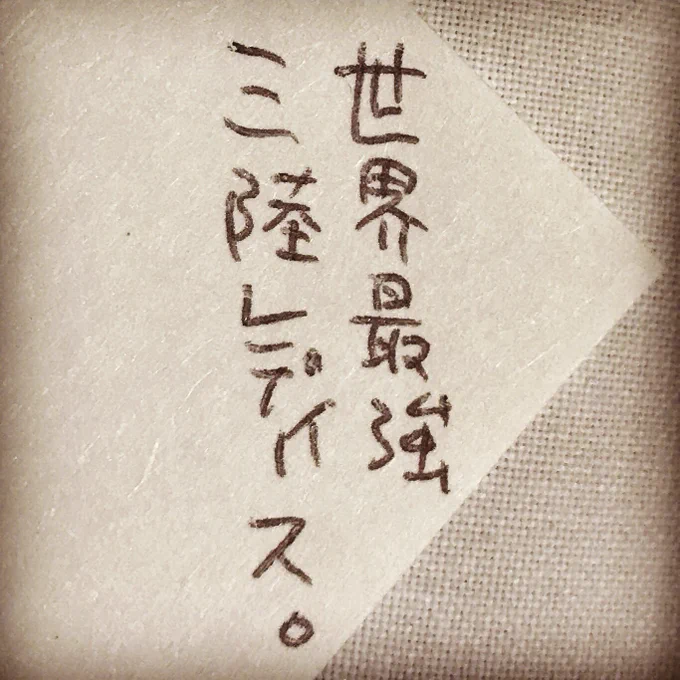 世界最強
三陸レディイス。